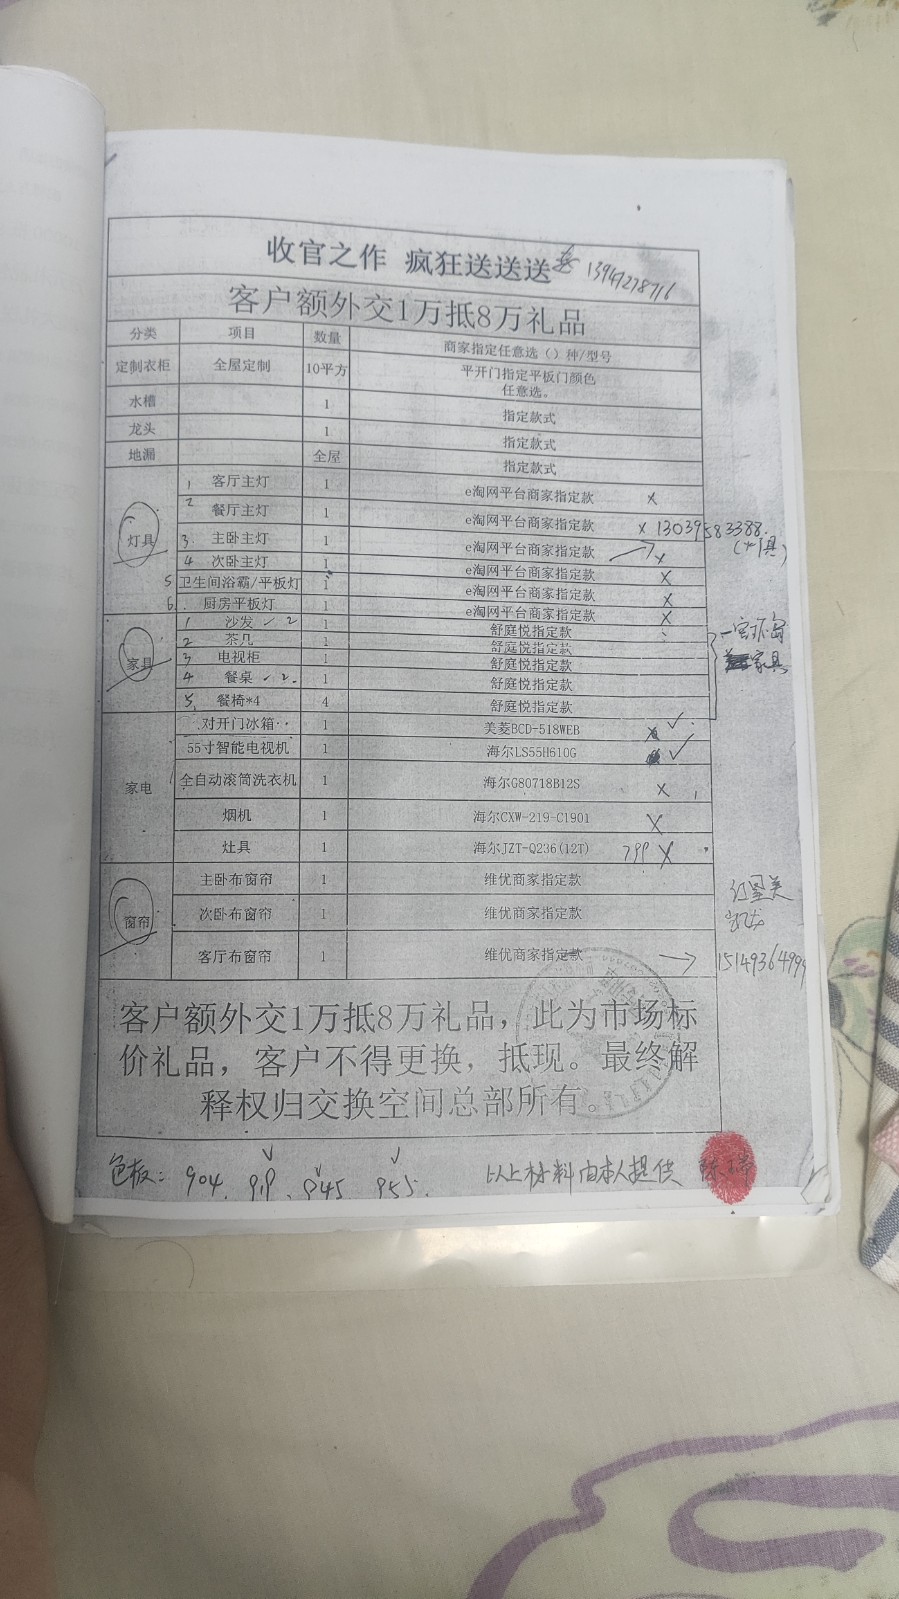 收官之作 疯狂送送送 13947278716
客户额外交1万抵8万礼品
分类 项目 数量 商家指定任意选（）种/型号
定制衣柜 全屋定制 10平方 平开门指定平板门颜色
任意选。
水槽 1 指定款式
龙头 1 指定款式
地漏 全屋 指定款式
灯具
1 客厅主灯 1 e淘网平台商家指定款 x
2 餐厅主灯 1 e淘网平台商家指定款 x 13039583388.
(灯具)
3. 主卧主灯 1 e淘网平台商家指定款
4 次卧主灯 1 e淘网平台商家指定款 x
5 卫生间浴霸/平板灯 1 e淘网平台商家指定款 x
6. 厨房平板灯 1 e淘网平台商家指定款 x
家具
1 沙发 ✓ 2 1 舒庭悦指定款
2 茶几 1 舒庭悦指定款
3 电视柜 1 舒庭悦指定款
4 餐桌 ✓ 2. 1 舒庭悦指定款
5. 餐椅*4 4 舒庭悦指定款
家具
家电
对开门冰箱 1 美菱BCD-518WEB ✓
55寸智能电视机 1 海尔LS55H610G ✓
全自动滚筒洗衣机 1 海尔G80718B12S x
烟机 1 海尔CXW-219-C1901 x
灶具 1 海尔JZT-Q236(12T) 799 x
窗帘
主卧布窗帘 1 维优商家指定款
次卧布窗帘 1 维优商家指定款
客厅布窗帘 1 维优商家指定款 → 15149364999
红星美
凯龙
客户额外交1万抵8万礼品，此为市场标
价礼品，客户不得更换，抵现。最终解
释权归交换空间总部所有。
色板： 904. 919. 945 955.
以上材料由本人提供